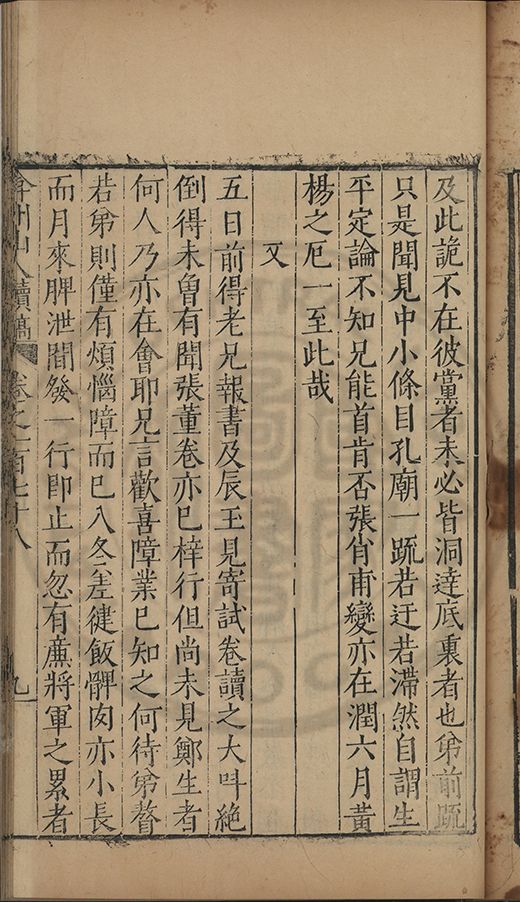 及此詭不在彼黨者未必皆洞達底裏者也弟前䟽
只是聞見中小條目孔廟一䟽若迂若滯然自謂生
平定論不知兄能首肯否張肖甫變亦在潤六月黃
楊之厄一至此哉
又
五日前得老兄報書及辰玉見寄試卷讀之大呌絶
倒得未曾有聞張董卷亦已梓行但尚未見鄭生者
何人乃亦在會耶兄言歡喜障業已知之何待弟瞽
若弟則僅有煩惱障而已入冬差健飯髀肉亦小長
而月來脾泄間發一行卽止而忽有廉將軍之累者
弇州山人續稿 卷之一百七十八 九